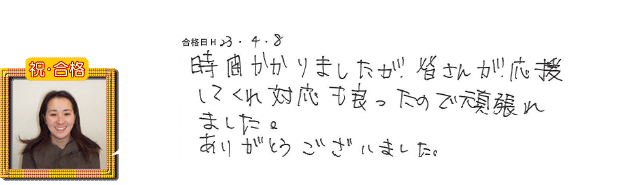 合格日H23.4.8
祝・合格
時間かかりましたが皆さんが応援
してくれ対応も良ったので頑張れ
ました。
ありがとうございました。